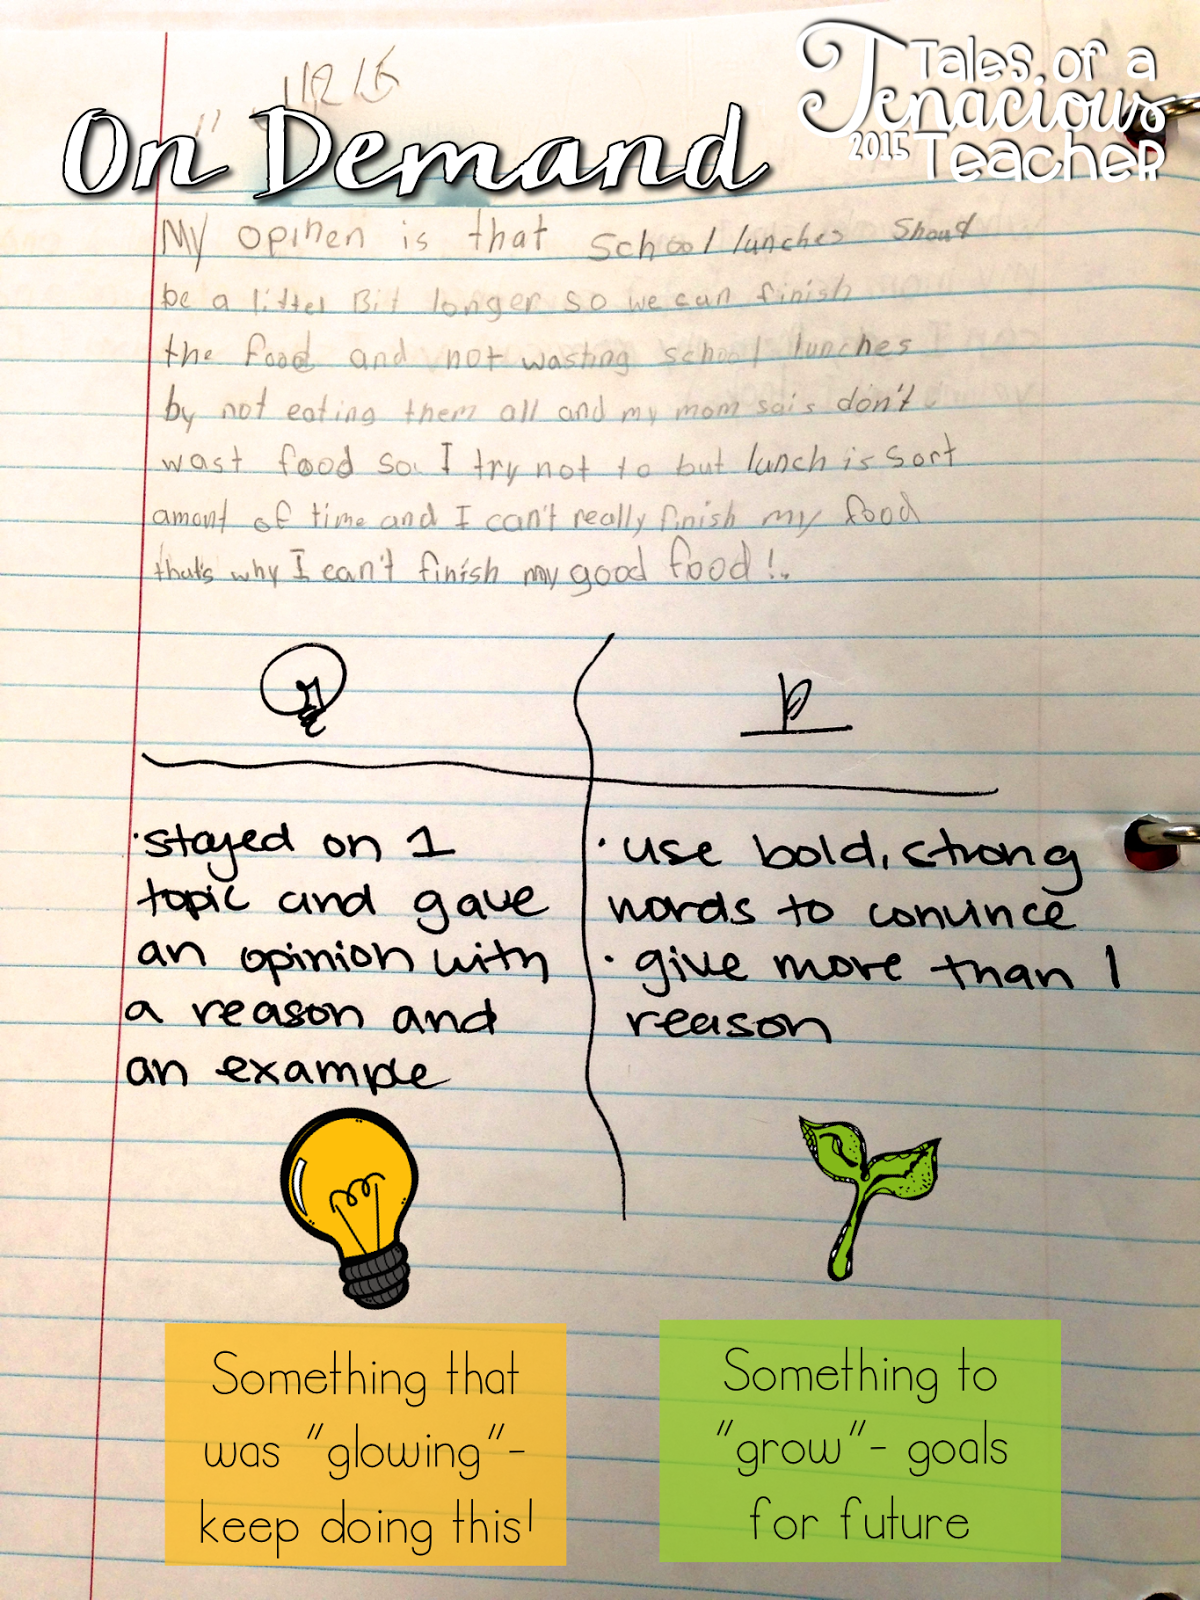 Tales of a
Tenacious
2015 Teacher
On Demand
My opinen is that school lunches shoud
be a litter Bit longer so we can finish
the food and not wasting school lunches
by not eating them all and my mom sais don't
wast food so I try not to but lunch is sort
amont of time and I can't really finish my food
that's why I can't finish my good food!.
·stayed on 1
topic and gave
an opinion with
a reason and
an example
·use bold, strong
words to convince
·give more than 1
reason
Something that
was "glowing"-
keep doing this!
Something to
"grow"- goals
for future